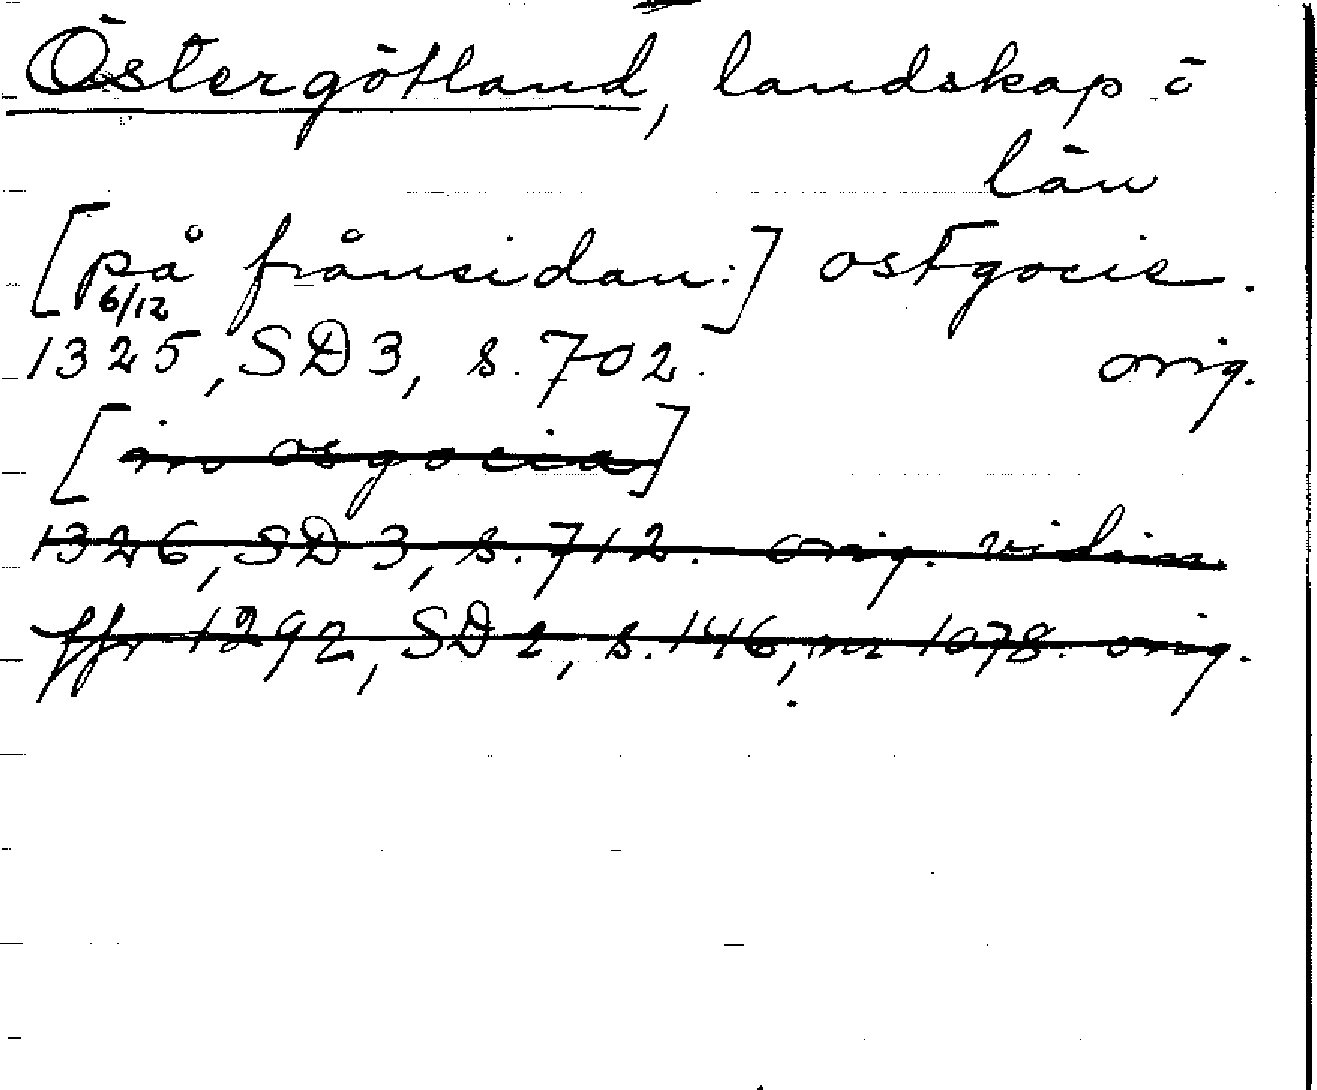 Östergötland, landskap o
län
[på frånsidan:] ostgocie.
6/12
1325, SD3, s. 702. orig.
[in osgocia]
1326, SD 3, s. 712. orig. vidim.
ffr 1292, SD 2, s. 146, nr 1078. orig.